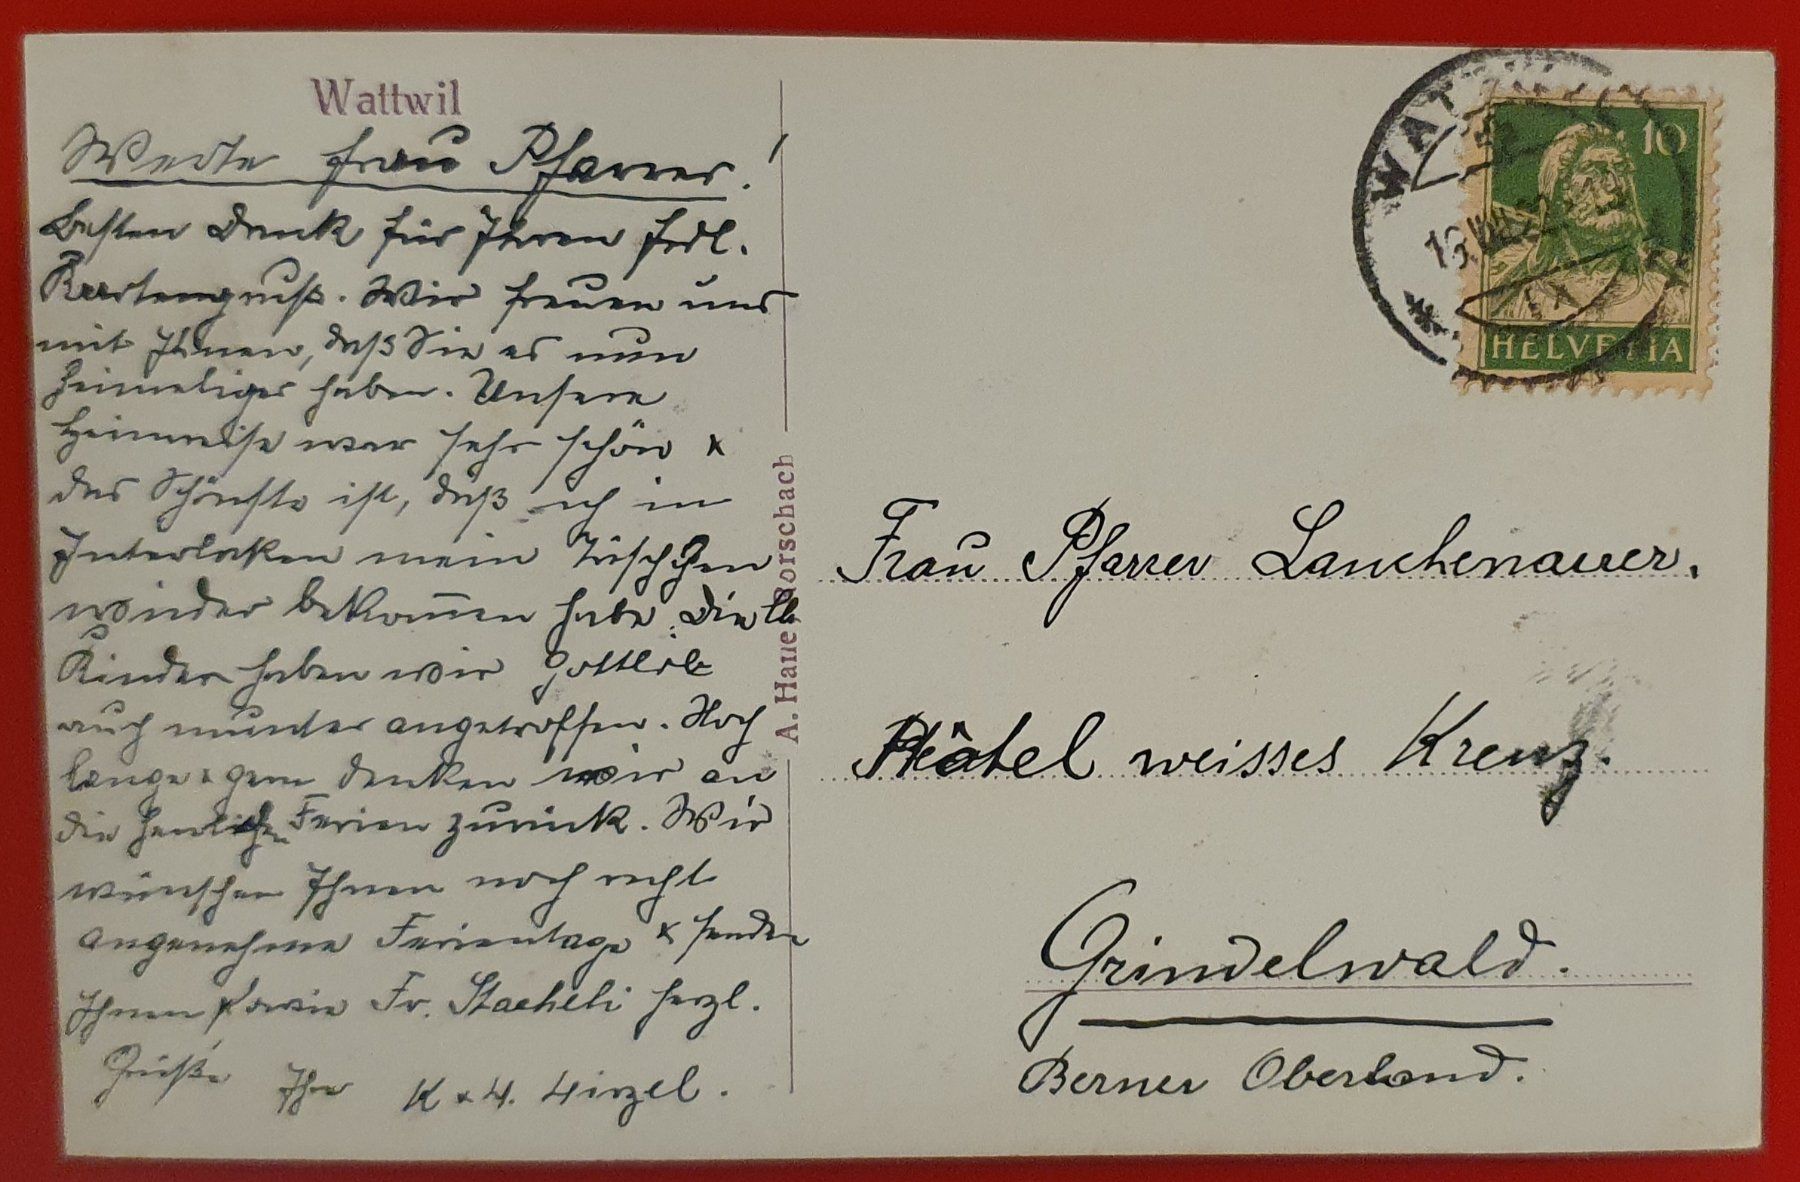 Wattwil
Werte Frau Pfarrer!
Besten Dank für Ihren frdl.
Kartengruß. Wir freuen uns
mit Ihnen, daß Sie es nun
heimeliger haben. Unsere
Heimreise war sehr schön &
das Schönste ist, daß ich in
Interlaken mein Täschchen
wieder bekommen habe. Die lb
Kinder haben wir gottlob
auch munter angetroffen. Noch
lange & gern denken wir an
die herrlichen Ferien zurück. Wir
wünschen Ihnen noch recht
angenehme Ferientage & senden
Ihnen sowie Fr. Staeheli herzl.
Grüße Ihre K & H. Hirzel.
A. Hauer Rorschach
WAT
10
HELVETIA
Frau Pfarrer Lauchenauer.
Hôtel weisses Kreuz.
Grindelwald.
Berner Oberland.